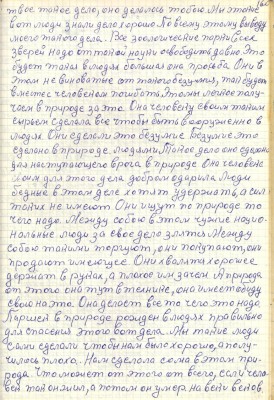 твое такое дело, оно делалось тобою. Мы это же
вот люди знали дело хорошо. По всему этому выводу
моего такого дела. Все зоологические парки всех
зверей надо от такой науки освободить давно. Это
будет такая в людях большая она просьба. Они в
этом не виноватые от такого безумия, так будет
вместе с человеком погибать. Этому легкое полу-
чаем в природе за это. Она человеку своим таким
сырьем сделала все чтобы быть вооруженно в
людях. Они сделали это безумие. Безумие это
сделано в природе людями. Такое дело оно сделано
для наступающего врага в природе. Оно человеке-
хом для этого дела добром одарила. Люди
бедные в этом деле хотят удержать, а сил
таких не имеют. Они ищут по природе то
чего надо. Между собою в этом чужие нацио-
нальные люди за свое дело злятся. Между
собою такими торгуют, они покупают, они
продают имеющее. Они хвалят хорошее
держат в руках, а плохое им зачем. А природа
от этого она путь технике, она имеет обиду
свою на это. Она делает все то чего это надо
Паршек в природе рожден в людях правильно
для спасения этого вот дела. Мы такие люди
сами сделали чтобы нам было хорошо, а полу-
чилось плохо. Нам сделала сама в этом при-
рода. Что может от этого от всего, если чело-
век так он жил, а потом он умер на веки веков.